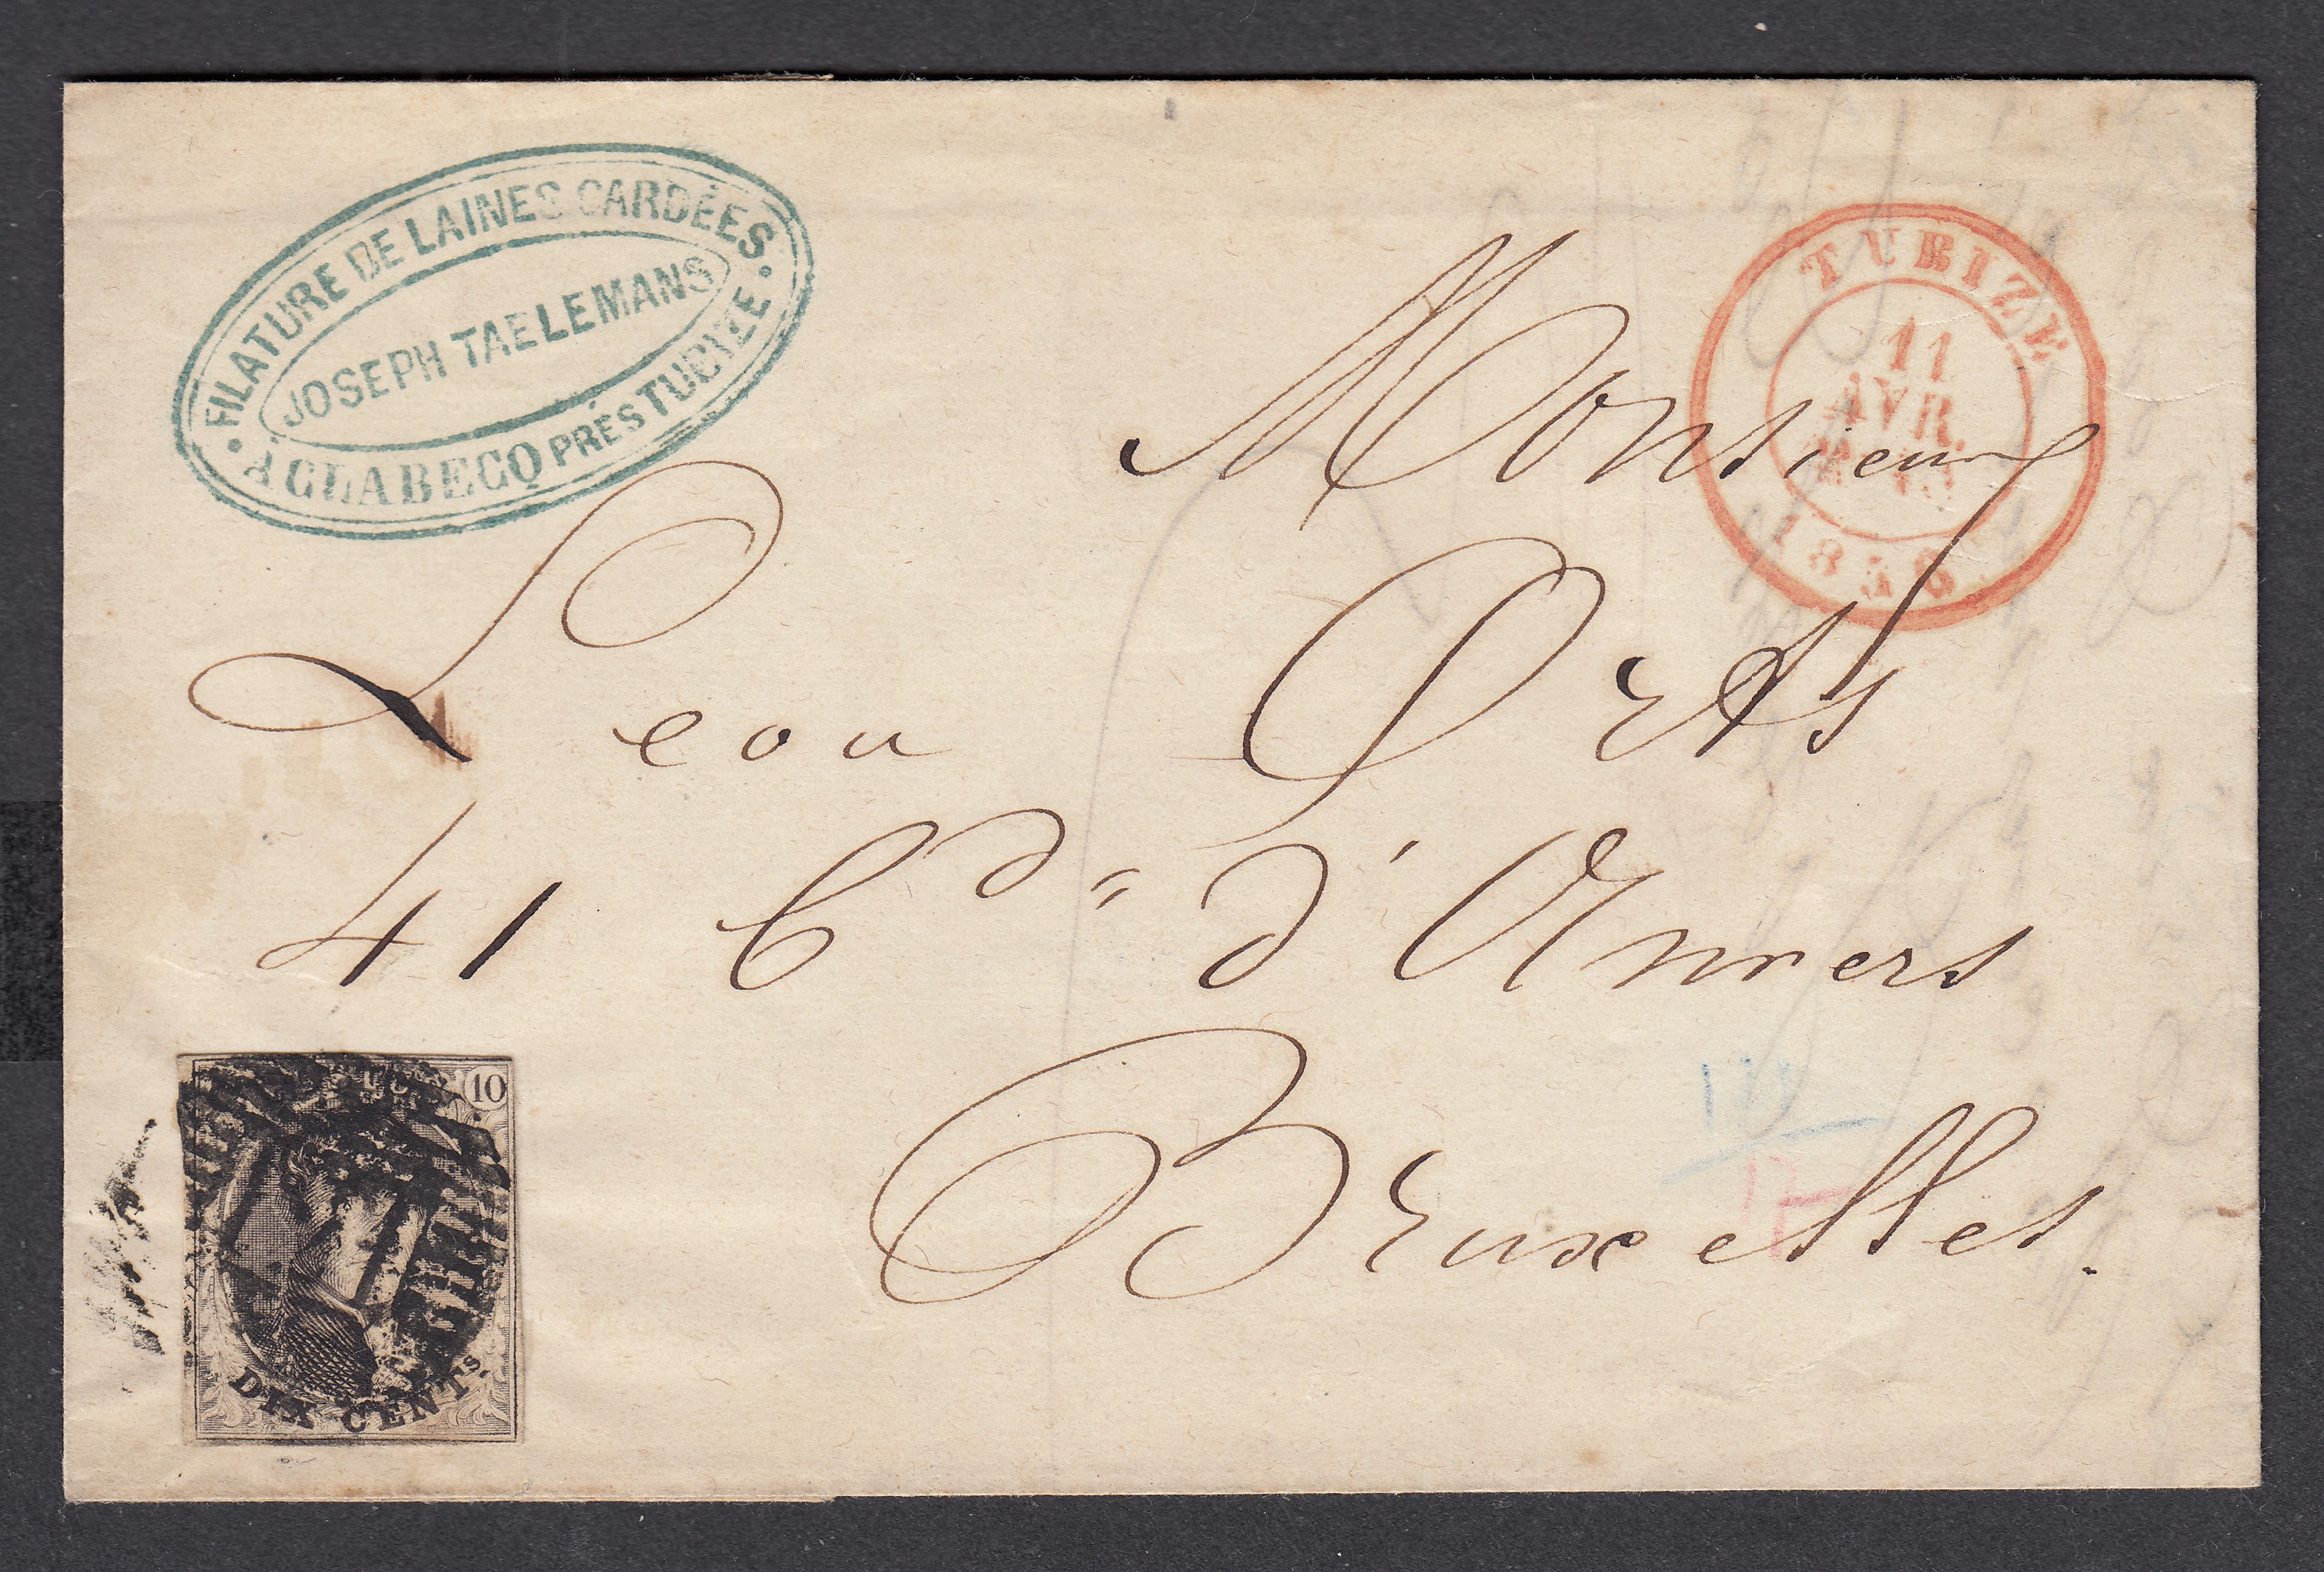 FILATURE DE LAINES CARDÉES
JOSEPH TAELEMANS
À CLABECQ PRÈS TUBIZE
TUBIZE
11
AVR.
1858
Monsieur
Leon Orts
41 Bd" d'Anvers
Bruxelles.
10
DIX CENTS.